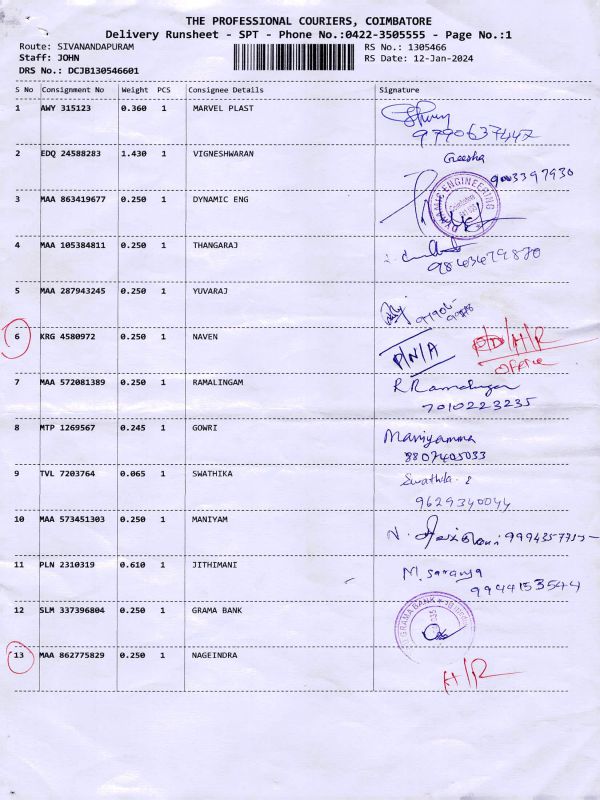 THE PROFESSIONAL COURIERS, COIMBATORE
Delivery Runsheet - SPT - Phone No.:0422-3505555 - Page No.:1
Route: SIVANANDAPURAM RS No.: 1305466
Staff: JOHN RS Date: 12-Jan-2024
DRS No.: DCJB130546601
S No Consignment No Weight PCS Consignee Details Signature
1 AWY 315123 0.360 1 MARVEL PLAST
9790637447
2 EDQ 24588283 1.430 1 VIGNESHWARAN Greesha
3 MAA 863419677 0.250 1 DYNAMIC ENG
DYNAMIC ENGINEERING
4 MAA 105384811 0.250 1 THANGARAJ
9843679870
5 MAA 287943245 0.250 1 YUVARAJ
6 KRG 4580972 0.250 1 NAVEN P/N/A H/R
OFFICE
7 MAA 572081389 0.250 1 RAMALINGAM R Ramalingam
7010223235
8 MTP 1269567 0.245 1 GOWRI Maniyamma
8807405033
9 TVL 7203764 0.065 1 SWATHIKA Swathika
9629340044
10 MAA 573451303 0.250 1 MANIYAM N.
11 PLN 2310319 0.610 1 JITHIMANI M. Saranya
9944153544
12 SLM 337396804 0.250 1 GRAMA BANK
GRAMA BANK
13 MAA 862775829 0.250 1 NAGEINDRA
H/R